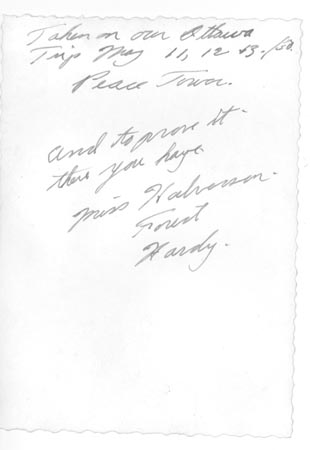 Taken on our Ottawa
Trip May 11, 12 + 3./50
Peace Tower.
and to prove it -
there you have
Miss Halvorson.
Forest
Hardy.